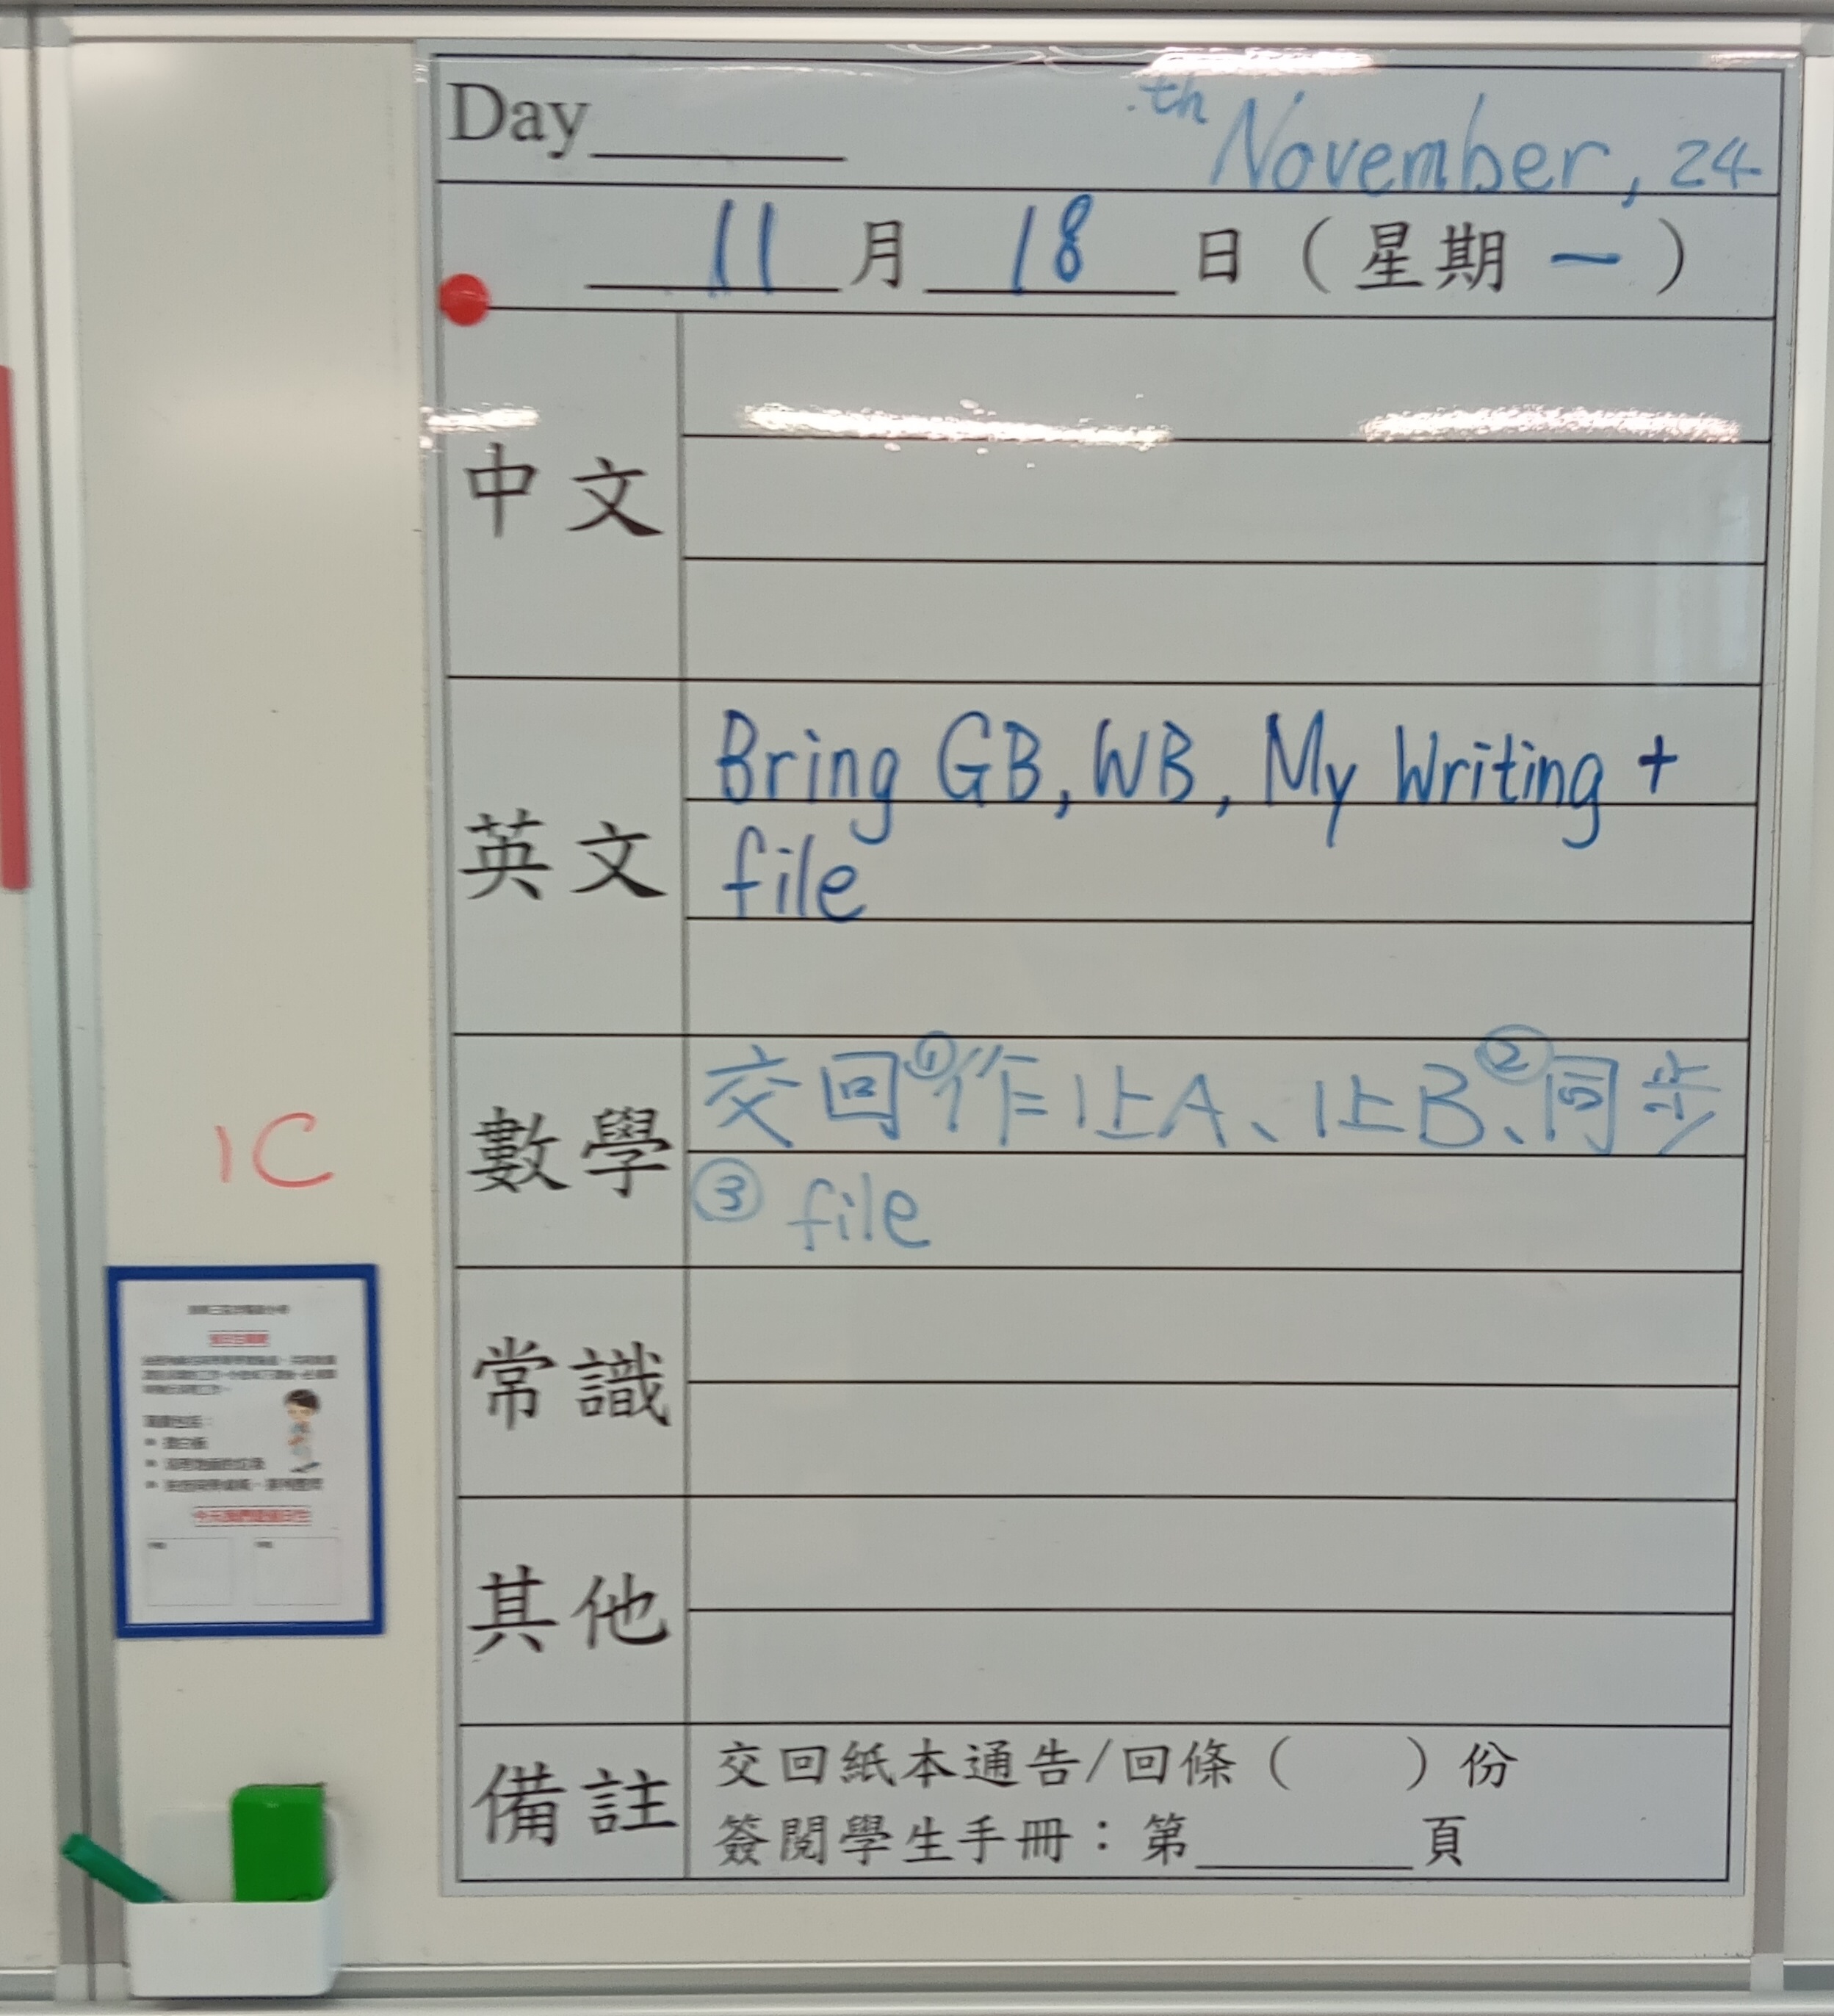 Day______ th November, 24
11 月 18 日 ( 星期 一 )
中文
英文
Bring GB, WB, My Writing +
file
數學
交回 ① 作 1上A、1上B、② 同步
③ file
1C
常識
其他
備註
交回紙本通告/回條 ( ) 份
簽閱學生手冊：第______頁